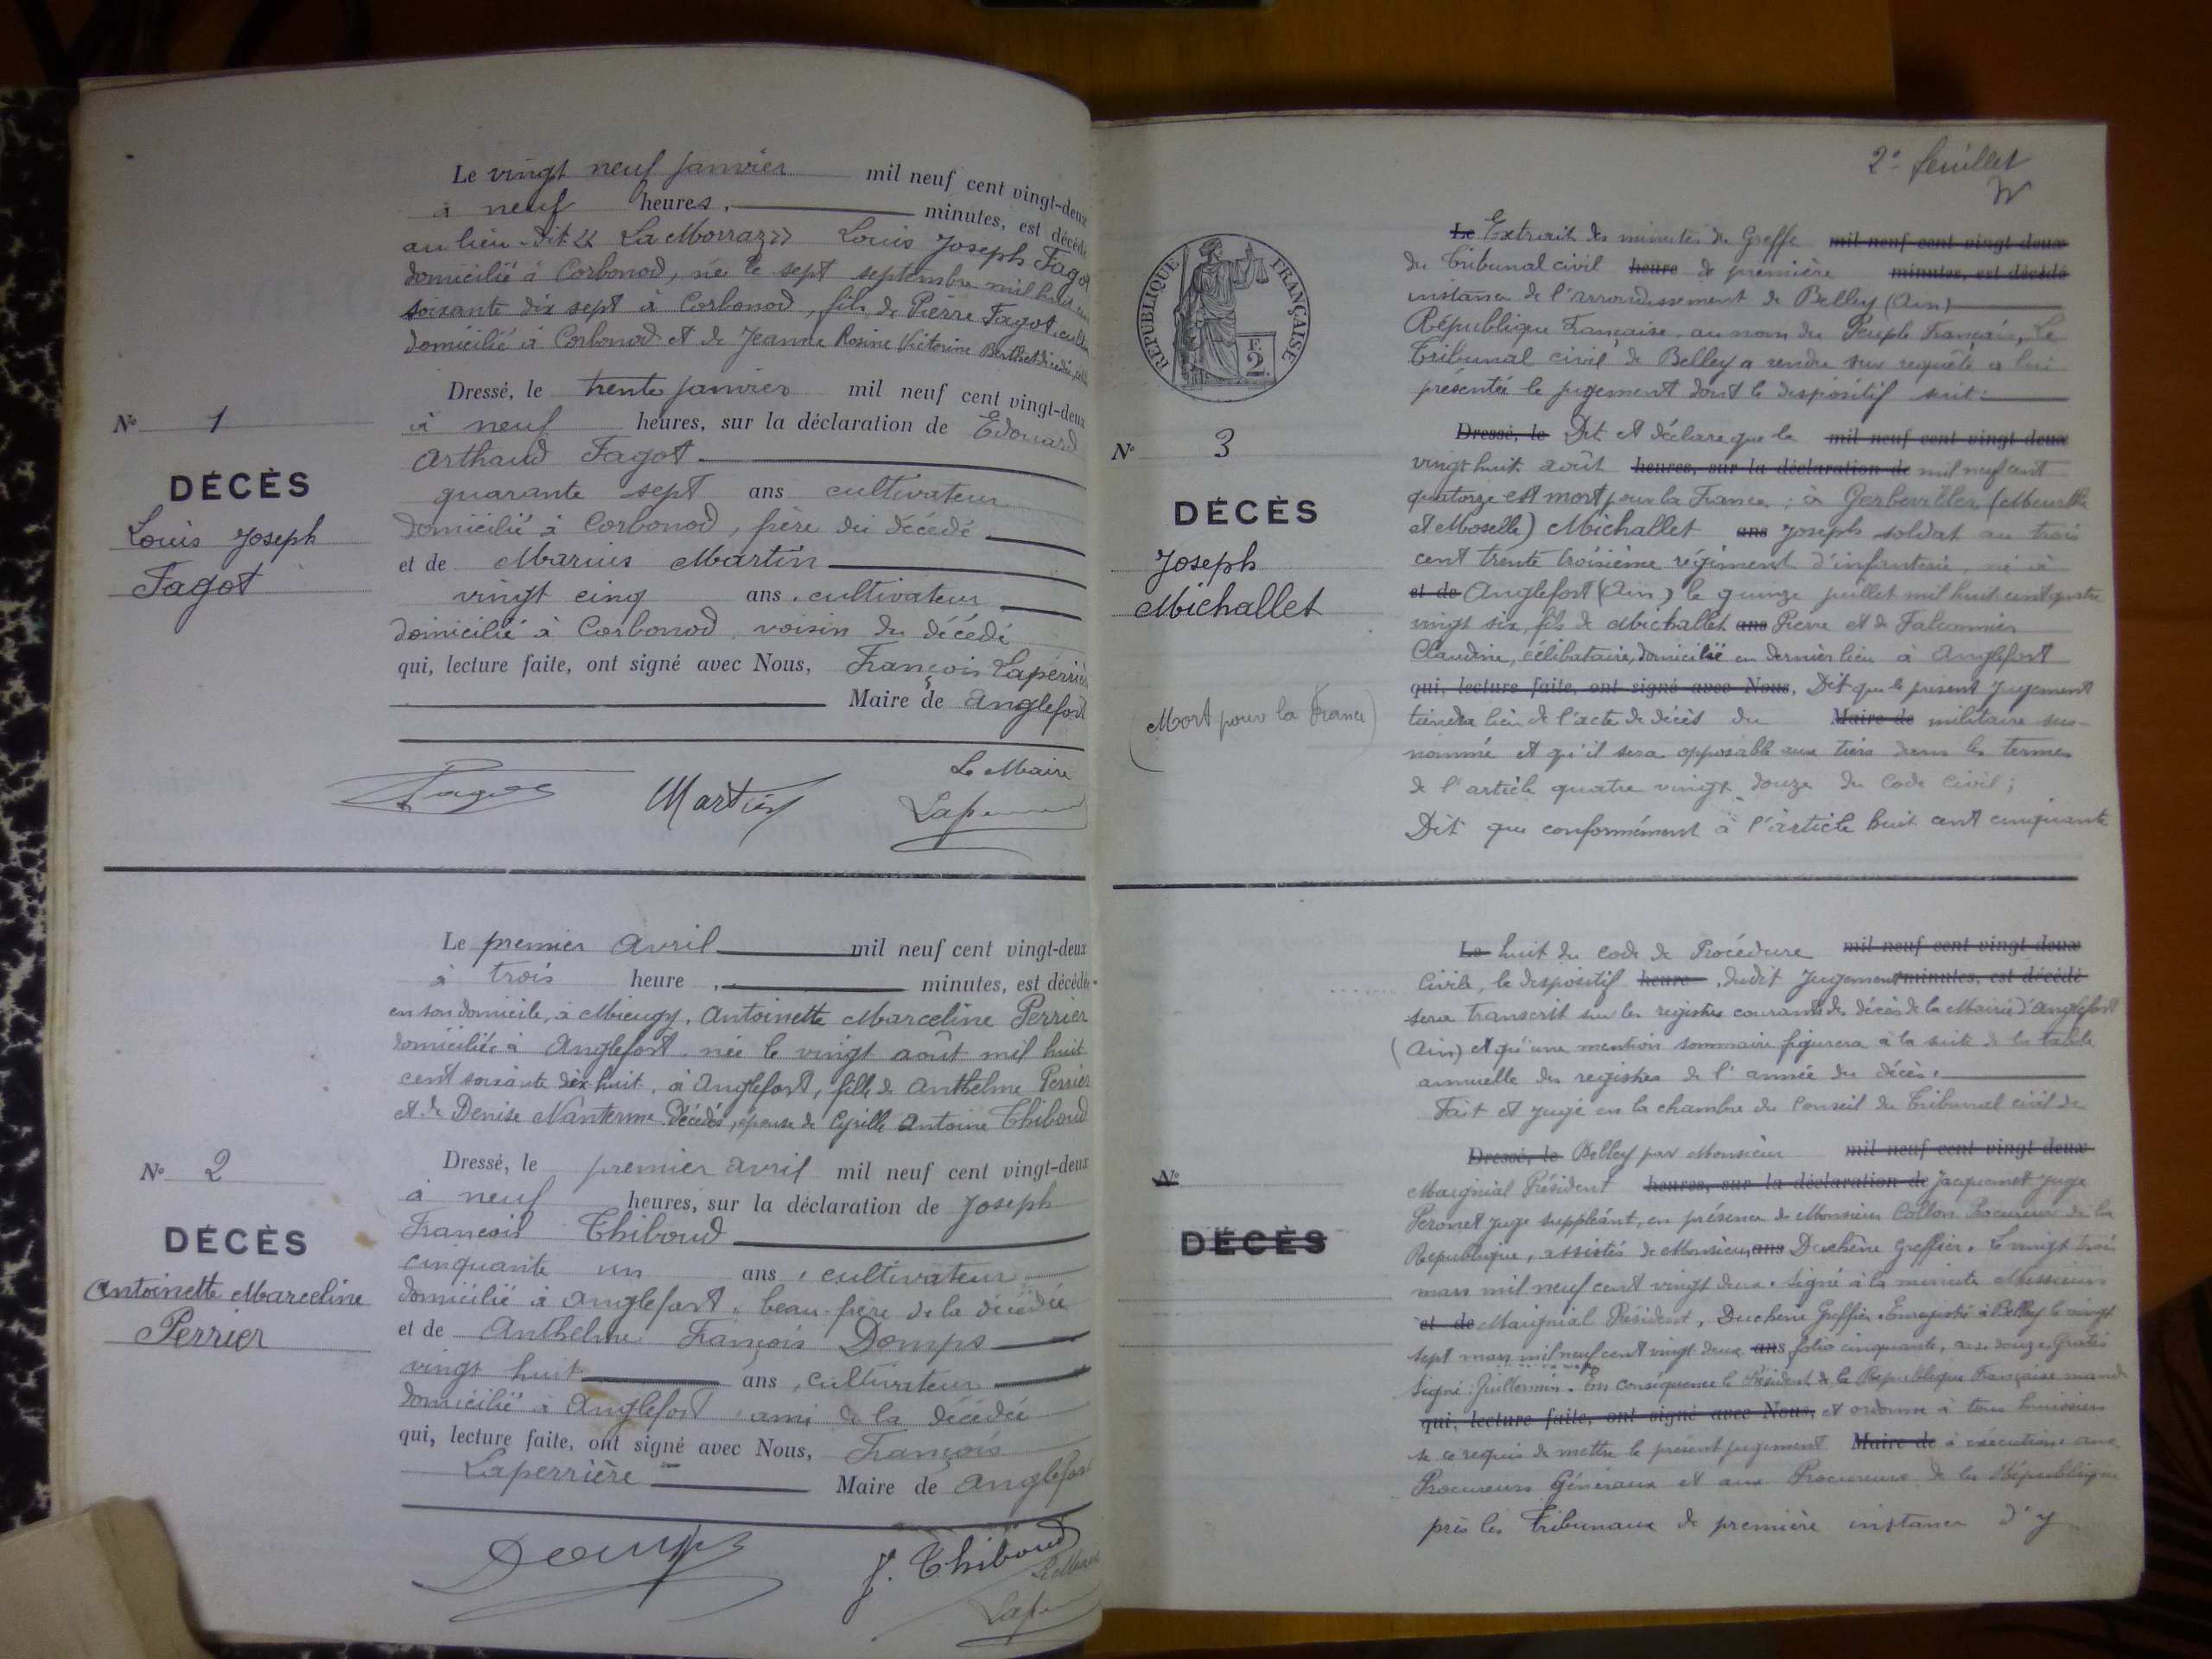 Le vingt neuf janvier mil neuf cent vingt-deux
à neuf heures, minutes, est décédé
au lieu-dit « La Morraz » Louis Joseph Fagot
domicilié à Corbonod, né le sept septembre mil huit cent
soixante dix sept à Corbonod, fils de Pierre Fagot,
domicilié à Corbonod et de Jeanne Rosine Victorine Berthet décédée,
Dressé, le trente janvier mil neuf cent vingt-deux
à neuf heures, sur la déclaration de Edouard
Arthaud Fagot
quarante sept ans cultivateur
domicilié à Corbonod, frère du décédé
et de Marius Martin
vingt cinq ans, cultivateur
domicilié à Corbonod, voisin du décédé
qui, lecture faite, ont signé avec Nous, François Laperrière
Maire de Anglefort
Nº 1
DÉCÈS
Louis Joseph
Fagot
Fagot Martin Le Maire
Le premier avril mil neuf cent vingt-deux
à trois heure , minutes, est décédée
en son domicile, à Mieugy, Antoinette Marceline Perrier
domiciliée à Anglefort, née le vingt août mil huit
cent soixante dix huit, à Anglefort, fille de Anthelme Perrier
et de Denise Nanterme décédés, épouse de Cyrille Antoine Thiboud
Dressé, le premier avril mil neuf cent vingt-deux
à neuf heures, sur la déclaration de Joseph
François Thiboud
cinquante un ans, cultivateur
domicilié à Anglefort, beau-frère de la décédée
et de Anthelme François Domps
vingt huit ans, cultivateur
domicilié à Anglefort, ami de la décédée
qui, lecture faite, ont signé avec Nous, François
Laperrière Maire de Anglefort
Nº 2
DÉCÈS
Antoinette Marceline
Perrier
Domps J. Thiboud
Le Maire
2e feuillet
RÉPUBLIQUE FRANÇAISE
F.
2.
Le Extrait des minutes du Greffe mil neuf cent vingt-deux
du Tribunal civil heure de première minutes, est décédé
instance de l'arrondissement de Belley (Ain)
République Française, au nom du Peuple Français, Le
Tribunal civil de Belley a rendu sur requête à lui
présentée le jugement dont le dispositif suit:
Dressé, le Dit et déclare que le mil neuf cent vingt-deux
vingt huit août heures, sur la déclaration de mil neuf cent
quatorze est mort pour la France; à Gerbeviller (Meurthe
et Moselle) Michallet ans Joseph soldat au trois
cent trente troisième régiment d'infanterie, né à
et de Anglefort (Ain) le quinze juillet mil huit cent quatre
vingt six, fils de Michallet ans Pierre et de Falconnier
Claudine, célibataire, domicilié en dernier lieu à Anglefort
qui, lecture faite, ont signé avec Nous, Dit que le présent jugement
tiendra lieu de l'acte de décès du Maire de militaire sus-
nommé et qu'il sera opposable aux tiers dans les termes
de l'article quatre vingt douze du Code Civil;
Dit que conformément à l'article huit cent cinquante
Nº 3
DÉCÈS
Joseph
Michallet
(Mort pour la France)
Le huit du code de Procédure mil neuf cent vingt-deux
Civile, le dispositif heure , dudit Jugement minutes, est décédé
sera transcrit sur les registres courants des décès de la Mairie d'Anglefort
(Ain) et qu'une mention sommaire figurera à la suite de la table
annuelle des registres de l'année du décès.
Fait et jugé en la chambre du Conseil du Tribunal civil de
Dressé, le Belley par Monsieur mil neuf cent vingt-deux
Maignial Président heures, sur la déclaration de Jacquemet juge
Peronet juge suppléant, en présence de Monsieur Collon Procureur de la
République, assistés de Monsieur ans Duchêne Greffier. Le vingt trois
mars mil neuf cent vingt deux. Signé à la minute Messieurs
et de Maignial Président, Duchêne Greffier. Enregistré à Belley le vingt
sept mars mil neuf cent vingt deux ans folio cinquante, case douze, Gratis
Signé: Guillermin. En conséquence le Président de la République Française mande
qui, lecture faite, ont signé avec Nous, et ordonne à tous huissiers
sur ce requis de mettre le présent jugement Maire de à exécution aux
Procureurs Généraux et aux Procureurs de la République
près les Tribunaux de première instance d'y
Nº
DÉCÈS